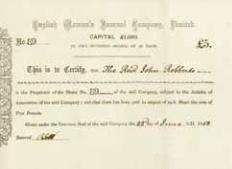 English Woman's Journal Company, Limited.
CAPITAL £1,000
IN TWO HUNDRED SHARES OF £5 EACH.
No. 89
£5.
This is to Certify, that The Revd John Robberds
is the Proprietor of the Share No. 89 of the said Company, subject to the Articles of
Association of the said Company; and that there has been paid in respect of such Share the sum of
Five Pounds.
Given under the Common Seal of the said Company the day of June A.D. 18
Entered